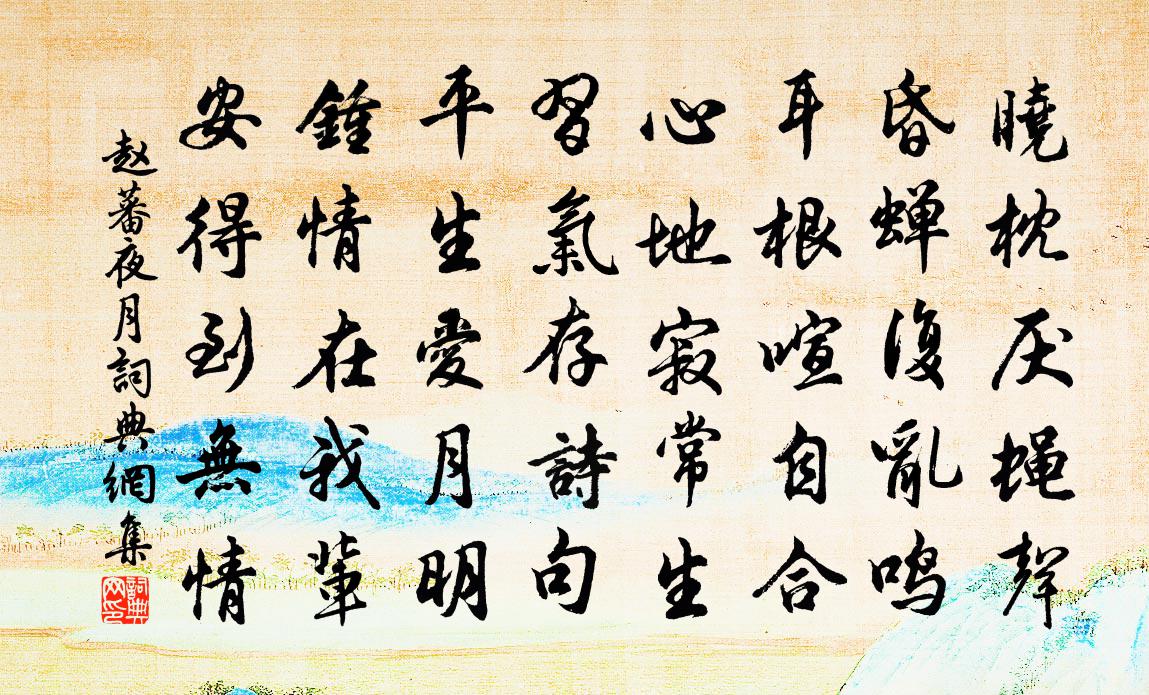 曉枕厌蝇聲
昏蝉復亂鸣
耳根喧自合
心地寂常生
習氣存詩句
平生愛月明
鍾情在我輩
安得到無情
赵蕃夜月詞典網集
詞典网印